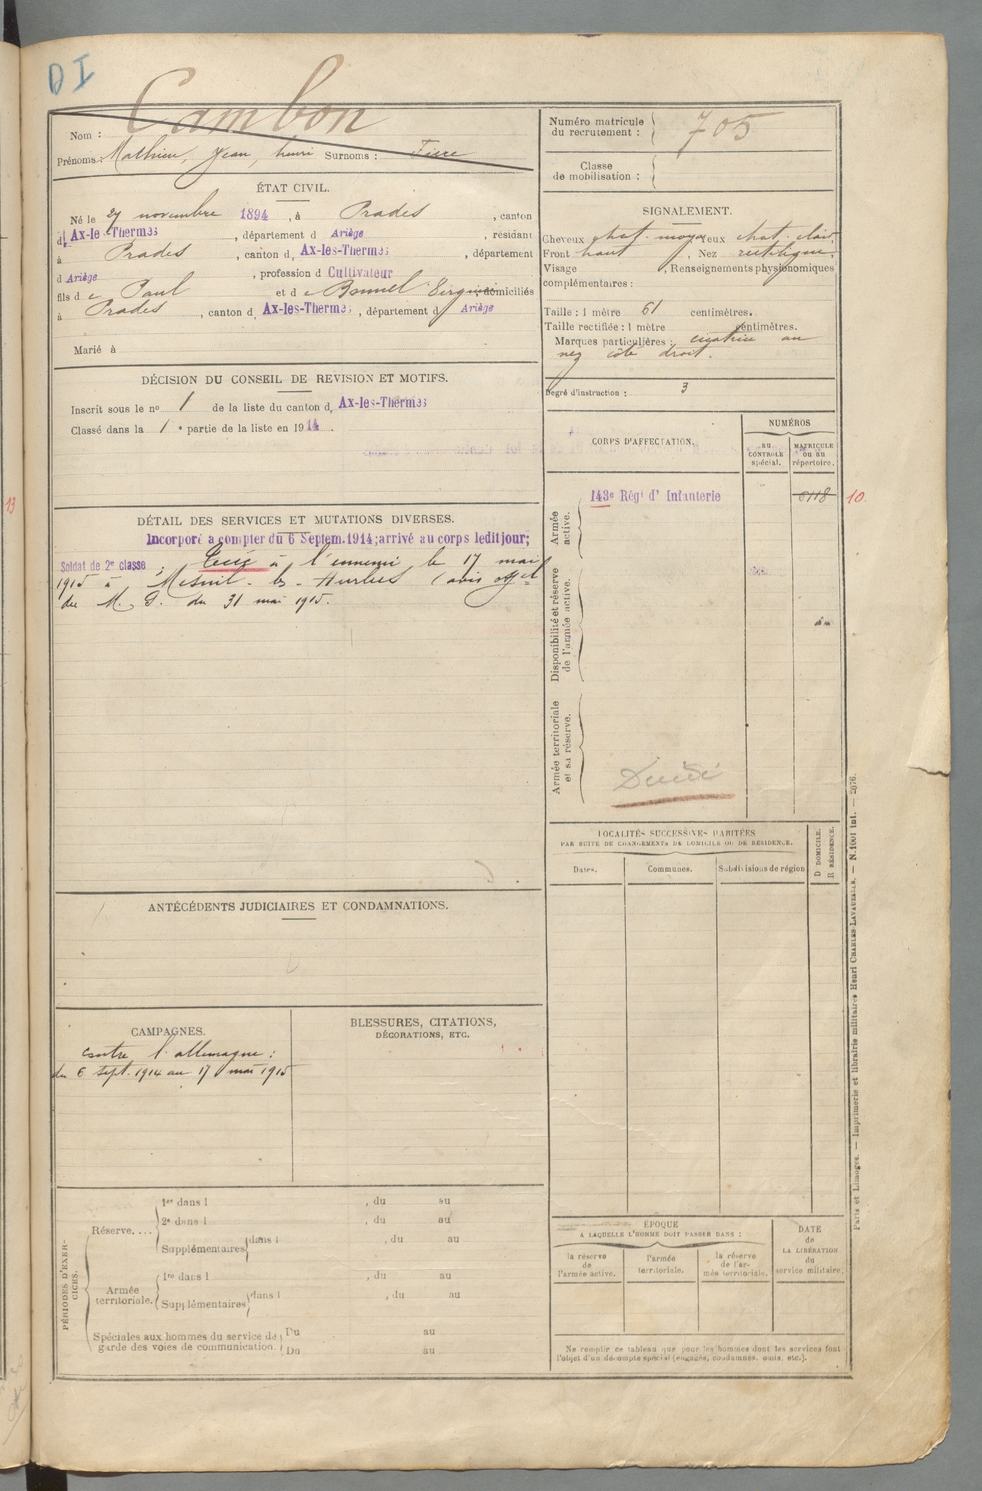 DI
Cambon
Nom :
Prénoms : Mathieu, Jean, henri Surnoms :
Numéro matricule du recrutement : 705
Classe de mobilisation :
ÉTAT CIVIL.
Né le 27 novembre 1894, à Prades, canton
d Ax-les-Thermes, département d Ariège, résidant
à Prades, canton d Ax-les-Thermes, département
d Ariège, profession d Cultivateur
fils de Paul et de Bonnel domiciliés
à Prades, canton d Ax-les-Thermes, département d Ariège
Marié à
SIGNALEMENT.
Cheveux chat. moyen Yeux chat. clair,
Front haut, Nez rectiligne,
Visage , Renseignements physionomiques
complémentaires :
Taille : 1 mètre 61 centimètres.
Taille rectifiée : 1 mètre centimètres.
Marques particulières : cicatrice au
nez côté droit.
Degré d'instruction : 3
DÉCISION DU CONSEIL DE REVISION ET MOTIFS.
Inscrit sous le nº 1 de la liste du canton d Ax-les-Thermes
Classé dans la 1e partie de la liste en 1914.
DÉTAIL DES SERVICES ET MUTATIONS DIVERSES.
Incorporé a compter du 6 Septem.1914;arrivé au corps ledit jour;
Soldat de 2e classe ; Tué à l'ennemi le 17 mai
1915 à Mesnil-les-Hurlus (avis offel
du M. G. du 31 mai 1915.
CORPS D'AFFECTATION.
NUMÉROS
au CONTROLE spécial.
MATRICULE ou au répertoire.
Armée active.
143e Régt d'Infanterie
6118
10.
Disponibilité et réserve de l'armée active.
Armée territoriale et sa réserve.
Décédé
13
ANTÉCÉDENTS JUDICIAIRES ET CONDAMNATIONS.
LOCALITÉS SUCCESSIVES HABITÉES
PAR SUITE DE CHANGEMENTS DE DOMICILE OU DE RÉSIDENCE.
Dates.
Communes.
Subdivisions de région
D DOMICILE.
R RÉSIDENCE.
CAMPAGNES.
contre l'allemagne :
du 6 sept. 1914 au 17 mai 1915
BLESSURES, CITATIONS,
DÉCORATIONS, ETC.
PÉRIODES D'EXERCICES.
Réserve....
1re dans l , du au
2e dans l , du au
Supplémentaires dans l , du au
Armée territoriale.
1re dans l , du au
Supplémentaires dans l , du au
Spéciales aux hommes du service de
garde des voies de communication.
Du au
Du au
ÉPOQUE
A LAQUELLE L'HOMME DOIT PASSER DANS :
la réserve de l'armée active.
l'armée territoriale.
la réserve de l'armée territoriale.
DATE de LA LIBÉRATION du service militaire.
Ne remplir ce tableau que pour les hommes dont les services font
l'objet d'un décompte spécial (engagés, condamnés, omis, etc.).
Paris et Limoges. — Imprimerie et librairie militaires Henri CHARLES-LAVAUZELLE. — N. 1001 int. — 2076.